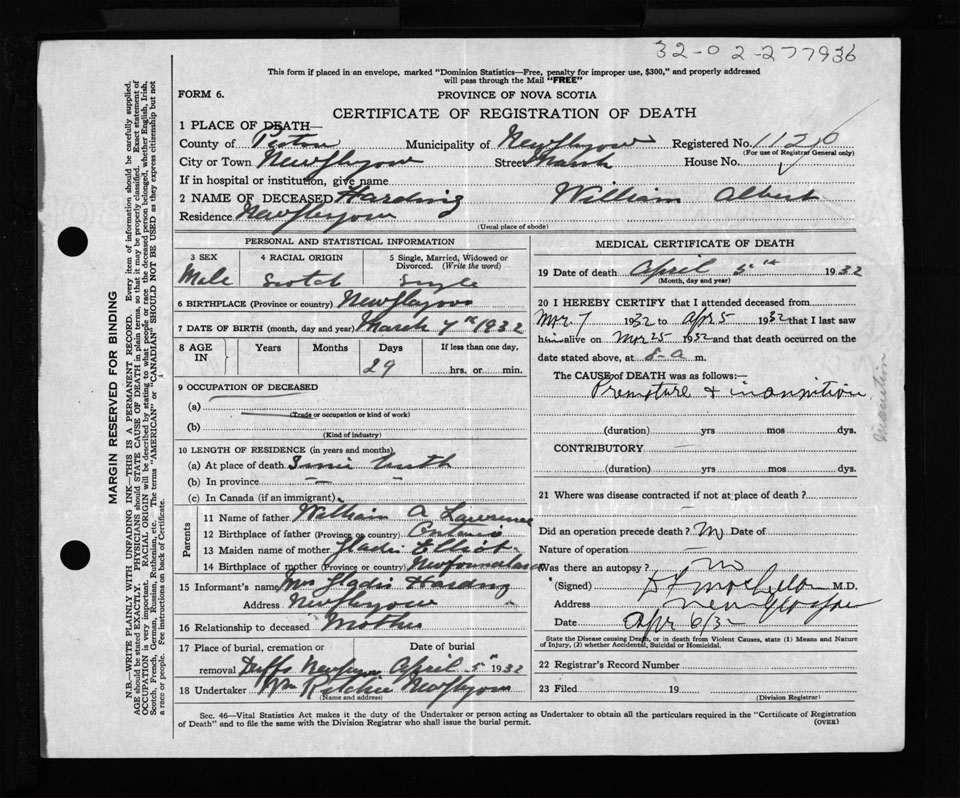 32-02-277936
This form if placed in an envelope, marked "Dominion Statistics—Free, penalty for improper use, $300," and properly addressed
will pass through the Mail "FREE"
FORM 6.
PROVINCE OF NOVA SCOTIA
CERTIFICATE OF REGISTRATION OF DEATH
1 PLACE OF DEATH—
County of Pictou Municipality of New Glasgow Registered No. 1120
(For use of Registrar General only)
City or Town New Glasgow Street Marsh House No.
If in hospital or institution, give name
2 NAME OF DECEASED Harding William Albert
Residence New Glasgow
(Usual place of abode)
PERSONAL AND STATISTICAL INFORMATION
3 SEX 4 RACIAL ORIGIN 5 Single, Married, Widowed or
Divorced. (Write the word)
Male Scotch Single
6 BIRTHPLACE (Province or country) New Glasgow
7 DATE OF BIRTH (month, day and year) March 7th 1932
8 AGE IN Years Months Days If less than one day,
29 hrs. or min.
9 OCCUPATION OF DECEASED
(a)
(Trade or occupation or kind of work)
(b)
(Kind of industry)
10 LENGTH OF RESIDENCE (in years and months)
(a) At place of death Since birth
(b) In province — -
(c) In Canada (if an immigrant)
Parents
11 Name of father William A Lawrence
12 Birthplace of father (Province or country) Ontario
13 Maiden name of mother Gladis Elliott
14 Birthplace of mother (Province or country) Newfoundland
15 Informant's name Mrs Gladis Harding
Address New Glasgow
16 Relationship to deceased Mother
17 Place of burial, cremation or Date of burial
removal Duffs April 5th 1932
18 Undertaker Wm Ritchie New Glasgow
(Name and address)
MEDICAL CERTIFICATE OF DEATH
19 Date of death April 5th 1932
(Month, day and year)
20 I HEREBY CERTIFY that I attended deceased from
Mar. 7 1932 to Apr 5 1932 that I last saw
him alive on Mar 25 1932 and that death occurred on the
date stated above, at 8-a m.
The CAUSE of DEATH was as follows:—
Premature & inannition
Inanition
(duration) yrs mos dys.
CONTRIBUTORY —
(duration) yrs mos dys.
21 Where was disease contracted if not at place of death?
Did an operation precede death? No Date of
Nature of operation —
Was there an autopsy? no
(Signed) M.D.
Address New Glasgow
Date Apr 6/32
State the Disease causing Death, or in death from Violent Causes, state (1) Means and Nature
of Injury, (2) whether Accidental, Suicidal or Homicidal.
22 Registrar's Record Number
23 Filed 19
(Division Registrar)
Sec. 46—Vital Statistics Act makes it the duty of the Undertaker or person acting as Undertaker to obtain all the particulars required in the "Certificate of Registration
of Death" and to file the same with the Division Registrar who shall issue the burial permit.
(OVER)
MARGIN RESERVED FOR BINDING
N.B.—WRITE PLAINLY WITH UNFADING INK—THIS IS A PERMANENT RECORD. Every item of information should be carefully supplied.
AGE should be stated EXACTLY. PHYSICIANS should STATE CAUSE OF DEATH in plain terms, so that it may be properly classified. Exact statement of
OCCUPATION is very important. RACIAL ORIGIN will be described by stating to what people or race the deceased person belonged, whether English, Irish,
Scotch, French, German, Russian, Ruthenian, etc. The terms "AMERICAN" or "CANADIAN" SHOULD NOT BE USED as they express citizenship but not
a race or people. See instructions on back of Certificate.